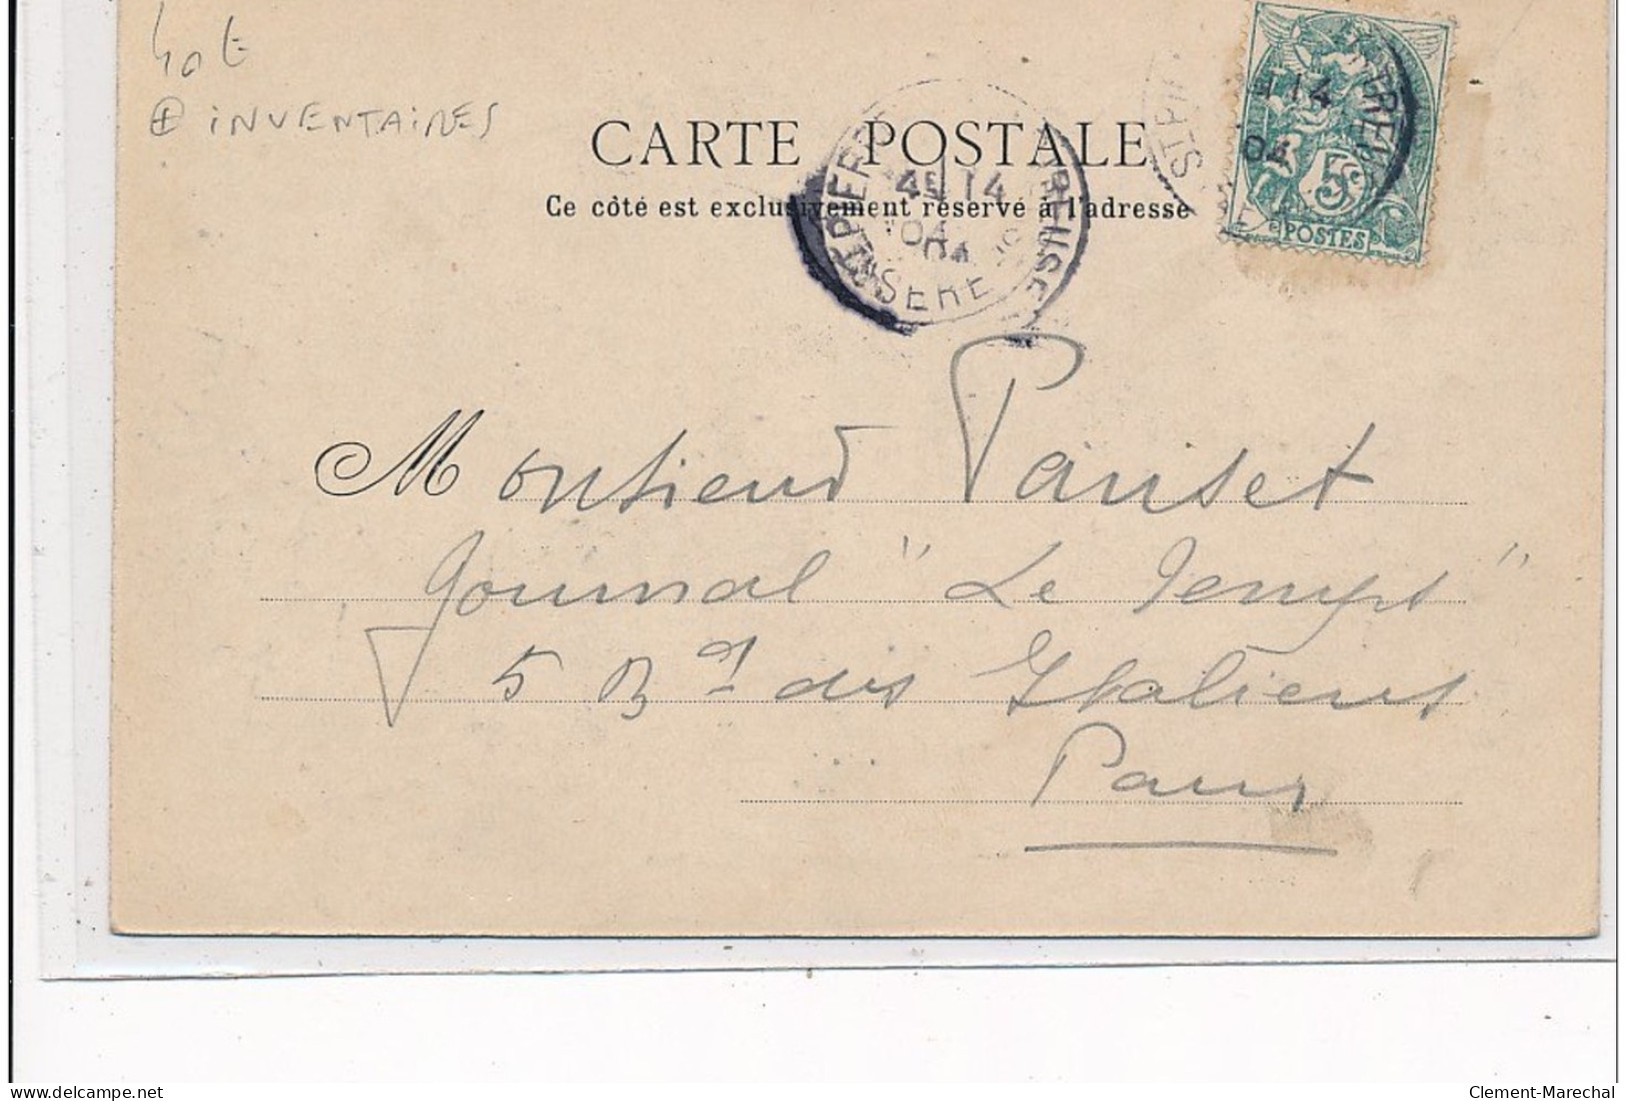 40 €
⊕ INVENTAIRES
CARTE POSTALE
Ce côté est exclusivement réservé à l'adresse
ST PIERRE CHARTREUSE
14
04
ISERE
14
04
5c
POSTES
Monsieur Pauset
Journal " Le Temps "
5 Bd des Italiens
Paris
Clement-Marechal